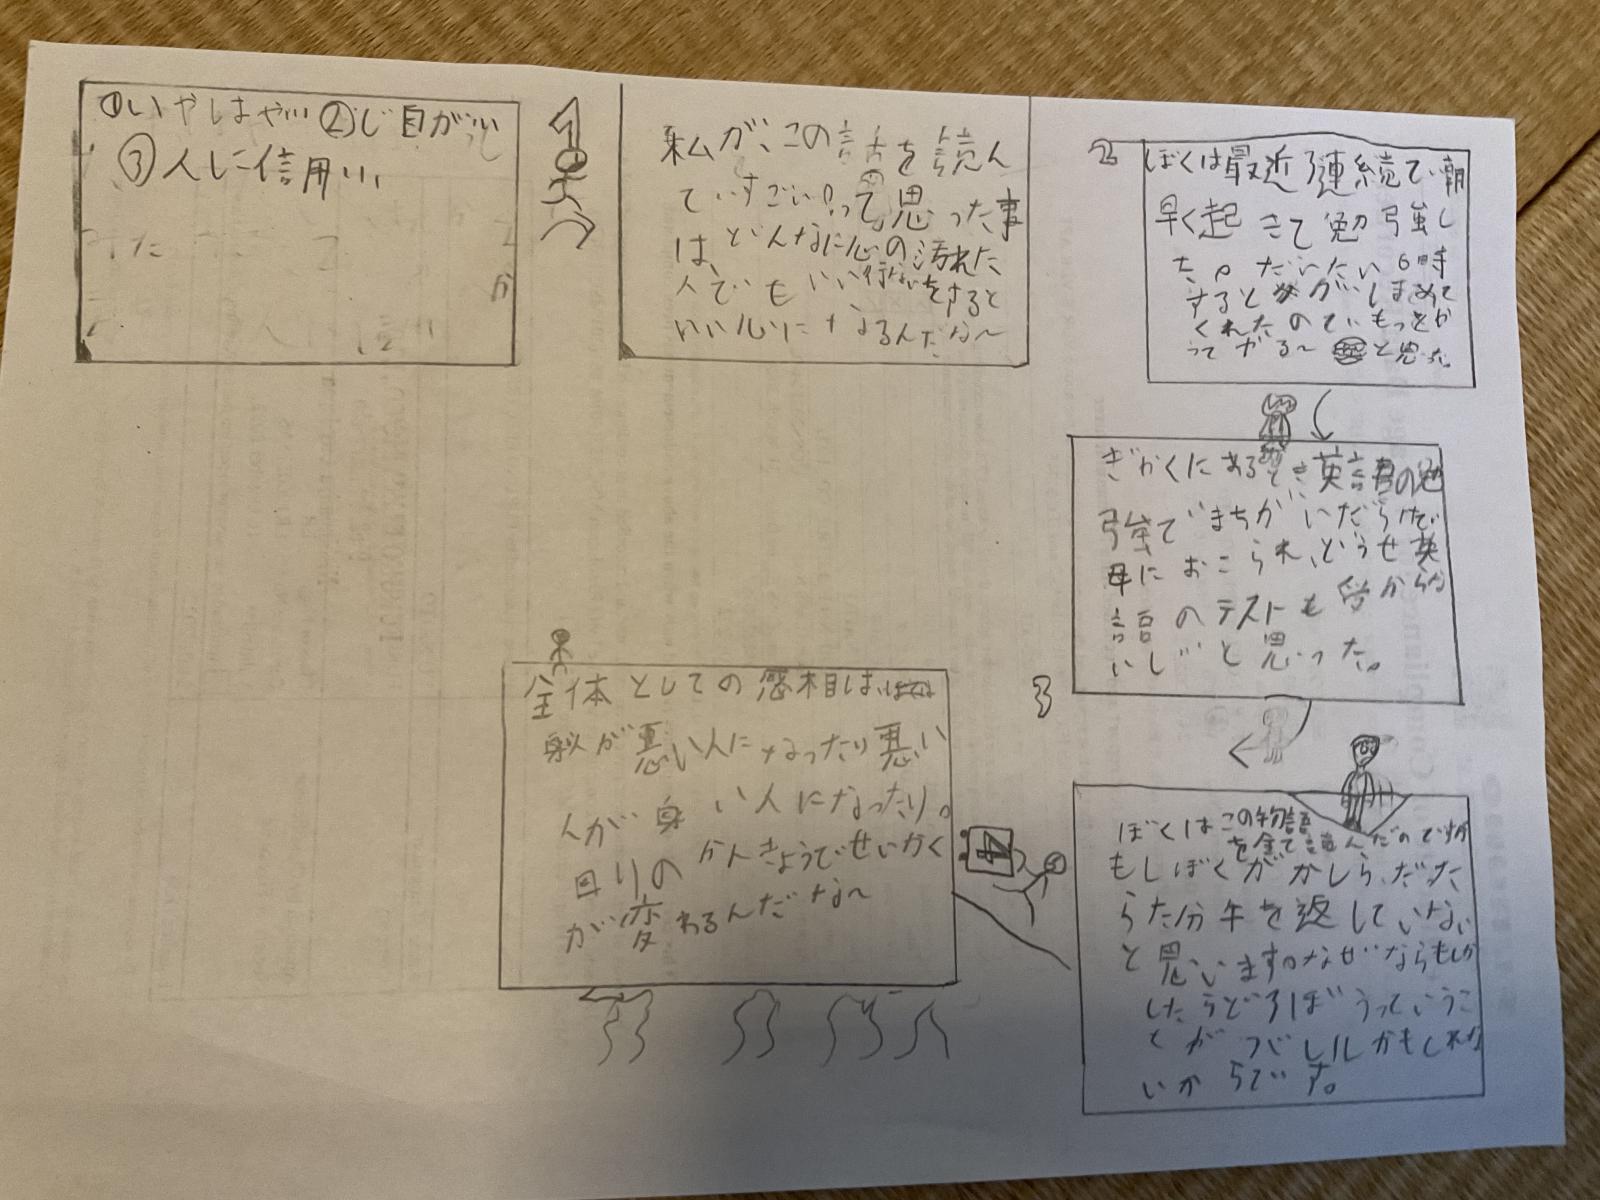 ①いやしはや
②じ目が
③人に信用
1
私が、この話を読ん
ていすごい!って思った事
は、どんなに心の汚れた
人でもいい行ないをすると
いい心になるんだな〜
2
ぼくは最近連続で朝
早く起きて勉強し
た。だいたい6時
すると がいしほめて
くれたのでもっとが
って やる〜 と思った。
ぎゃくにあるとき英語の勉
強でまちがいだらけで
母におこられ、どうせ英
語のテストも だから
いじ と思った。
3
ぼくはこの物語
を全て読んだのですが
もしぼくがかしらだった
らた分牛を返していない
と思います。なぜならもしか
したらどろぼうっていうこ
とがバレルかもしれな
いからです。
4
全体としての感想は、
良い人が悪い人になったり悪い
人が良い人になったり。
回りのかんきょうでせいかく
が変わるんだな〜